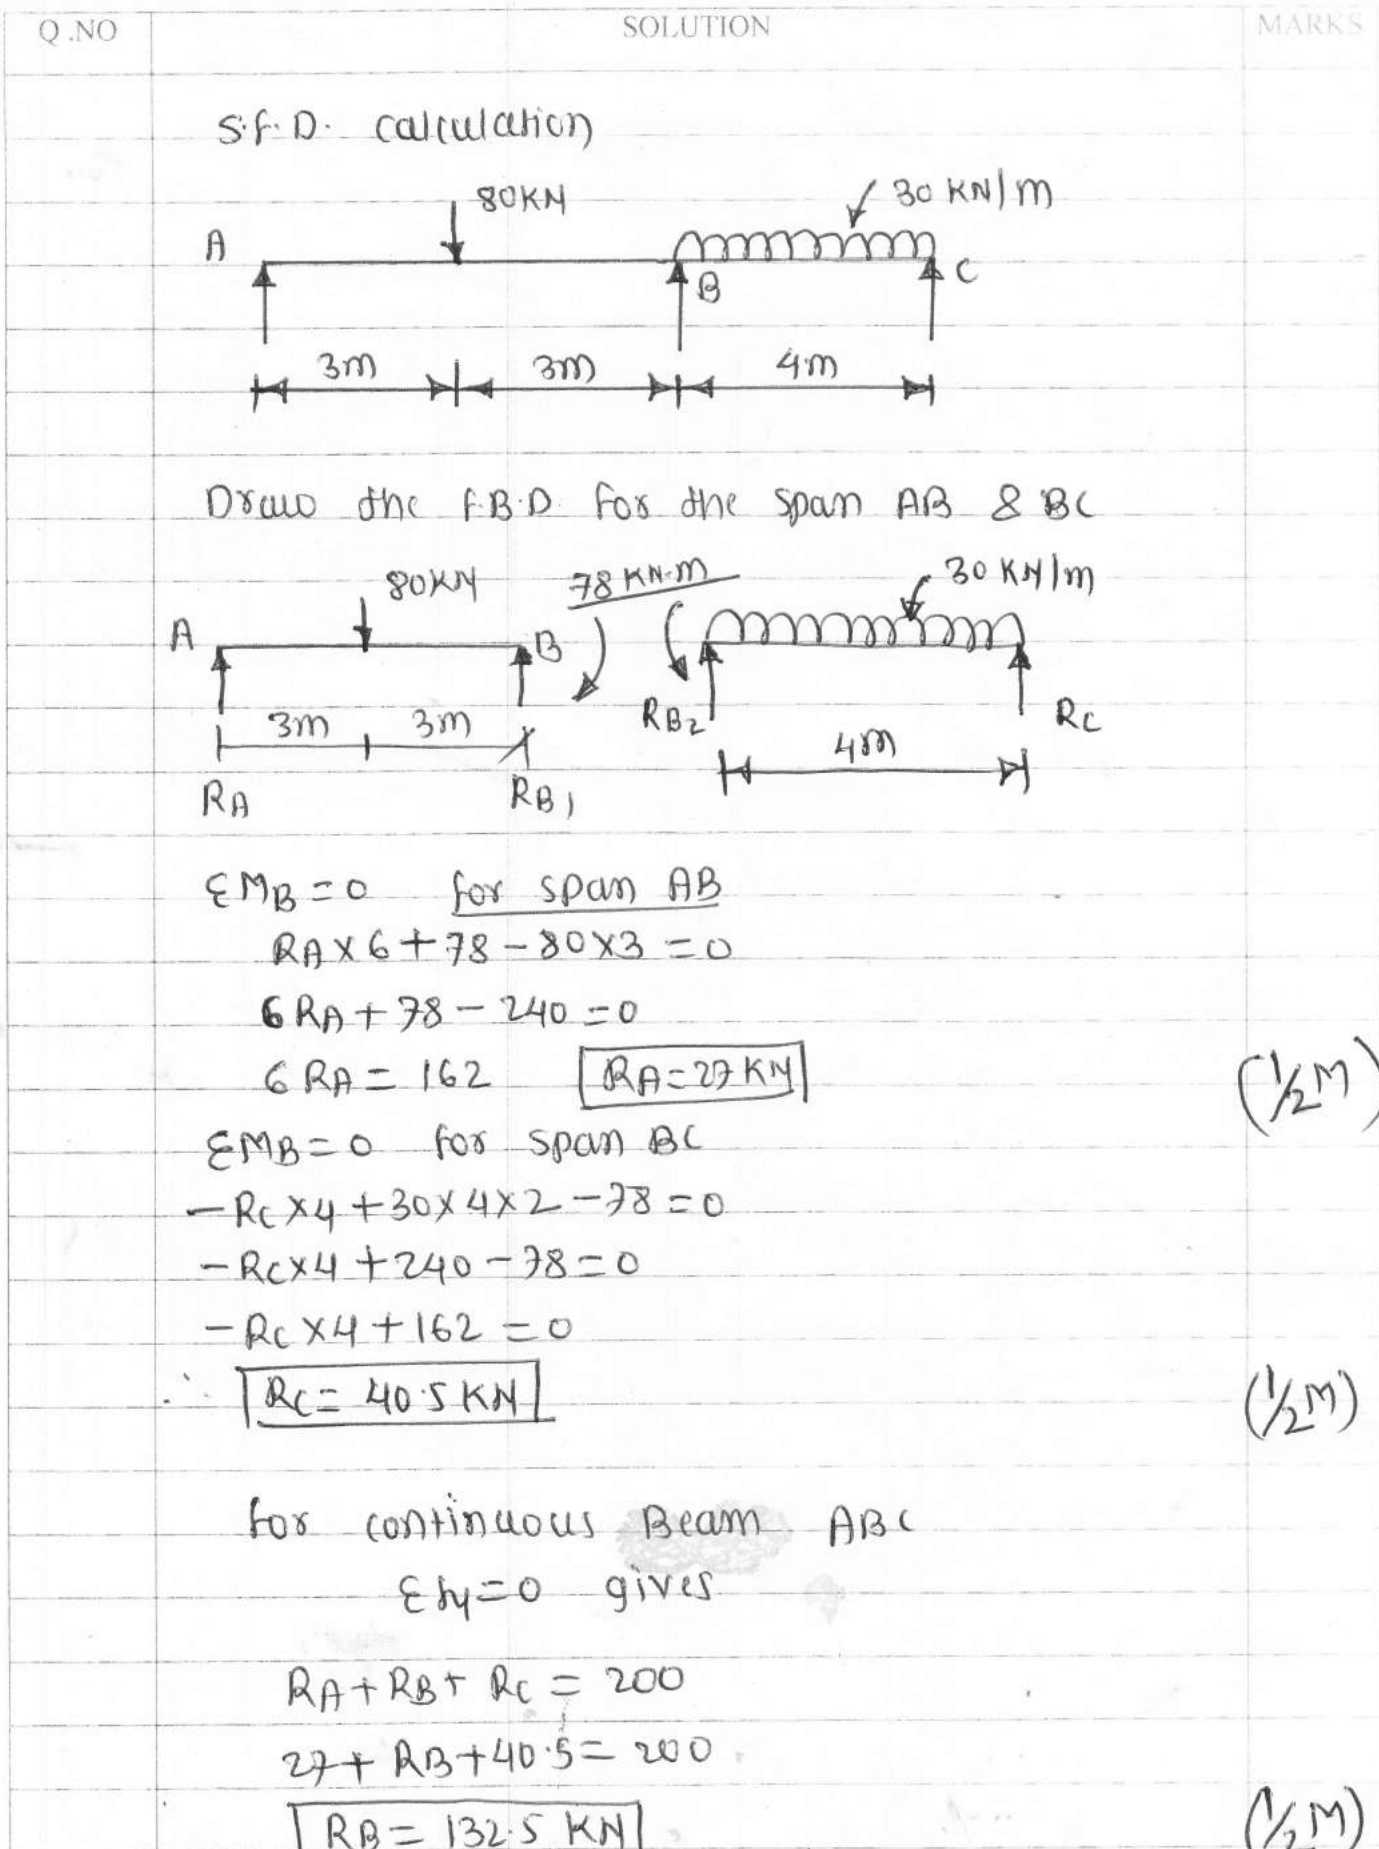 Q.NO SOLUTION MARKS
S.F.D. calculation
80KN 30 KN/m
A B C
3m 3m 4m
Draw the F.B.D. for the span AB & BC
80KN 78 KN.m 30 KN/m
A B
3m 3m RB2 4m RC
RA RB1
ΣMB=0 for span AB
RA×6+78-80×3=0
6RA+78-240=0
6RA=162 RA=27KN (1/2M)
ΣMB=0 for span BC
-RC×4+30×4×2-78=0
-RC×4+240-78=0
-RC×4+162=0
∴ RC=40.5KN (1/2M)
for continuous Beam ABC
Σfy=0 gives
RA+RB+RC=200
27+RB+40.5=200
RB=132.5 KN (1/2M)